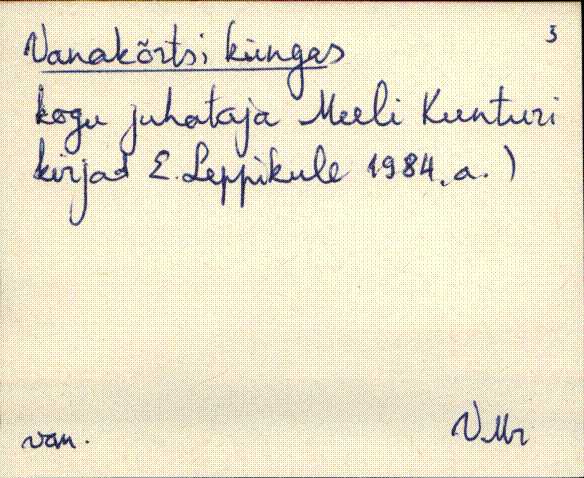 3
Vanakõrtsi küngas
kogu juhataja Meeli Kunturi
kirjad E. Leppikule 1984. a.)
van.
VMr